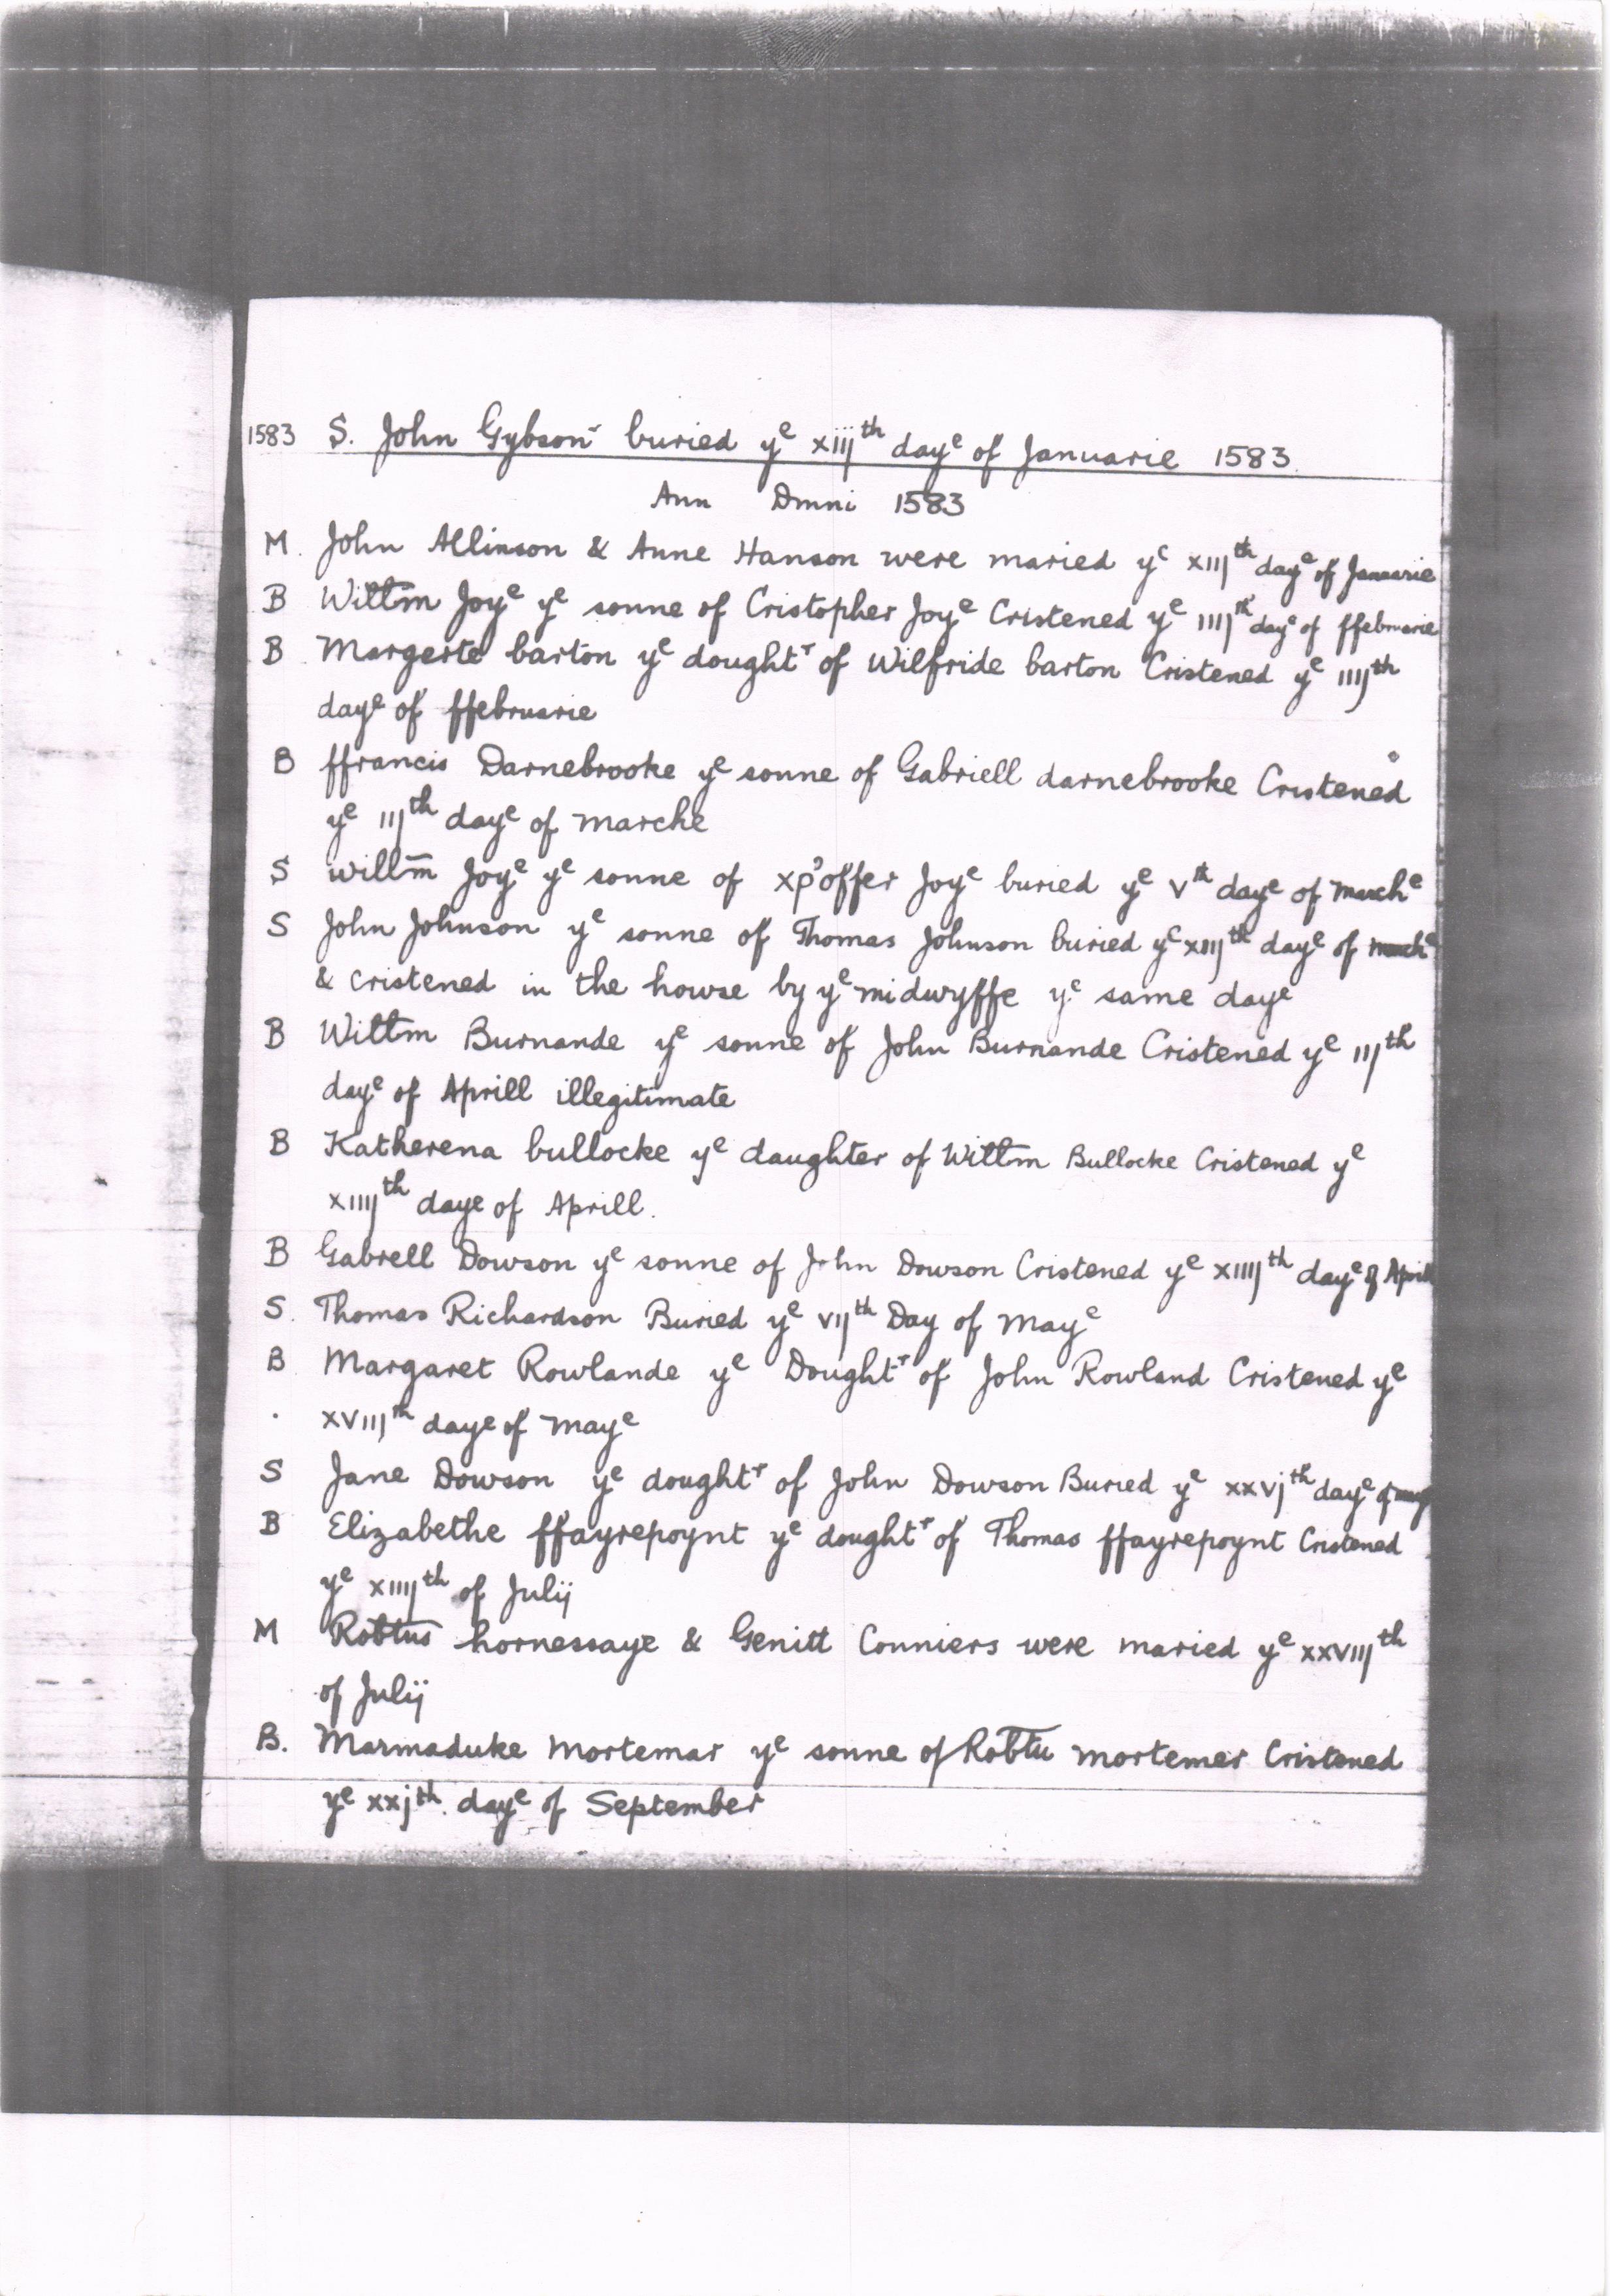 1583 S. John Gybson buried yᵉ xiijᵗʰ dayᵉ of Januarie 1583
Ann Dmni 1583
M. John Allinson & Anne Hanson were maried yᵉ xiijᵗʰ dayᵉ of Januarie
B Willm Joyᵉ yᵉ sonne of Cristopher Joyᵉ Cristened yᵉ iiijᵗʰ dayᵉ of ffebruarie
B Margerte barton yᵉ doughtʳ of Wilfride barton Cristened yᵉ iiijᵗʰ
dayᵉ of ffebruarie
B ffrancis Darnebrooke yᵉ sonne of Gabriell darnebrooke Cristened
yᵉ iijᵗʰ dayᵉ of marche
S willm̄ Joyᵉ yᵉ sonne of xp'offer Joyᵉ buried yᵉ vᵗʰ dayᵉ of marchᵉ
S John Johnson yᵉ sonne of Thomas Johnson buried yᵉ xiijᵗʰ dayᵉ of marchᵉ
& cristened in the howse by yᵉ midwyffe yᵉ same dayᵉ
B Willm Burnande yᵉ sonne of John Burnande Cristened yᵉ iijᵗʰ
dayᵉ of Aprill illegitimate
B Katherena bullocke yᵉ daughter of Willm Bullocke Cristened yᵉ
xiiijᵗʰ daye of Aprill.
B Gabrell Dowson yᵉ sonne of John Dowson Cristened yᵉ xiiijᵗʰ dayᵉ of Aprill
S. Thomas Richardson Buried yᵉ vijᵗʰ Day of mayᵉ
B Margaret Rowlande yᵉ Doughtʳ of John Rowland Cristened yᵉ
xviijᵗʰ daye of mayᵉ
S Jane Dowson yᵉ doughtʳ of John Dowson Buried yᵉ xxvjᵗʰ dayᵉ of may
B Elizabethe ffayrepoynt yᵉ doughtʳ of Thomas ffayrepoynt Cristened
yᵉ xiiijᵗʰ of Julij
M Robtus hornessaye & Genitt Conniers were maried yᵉ xxviijᵗʰ
of Julij
B. Marmaduke mortemar yᵉ sonne of Robtu mortemer Cristened
yᵉ xxjᵗʰ. dayᵉ of September